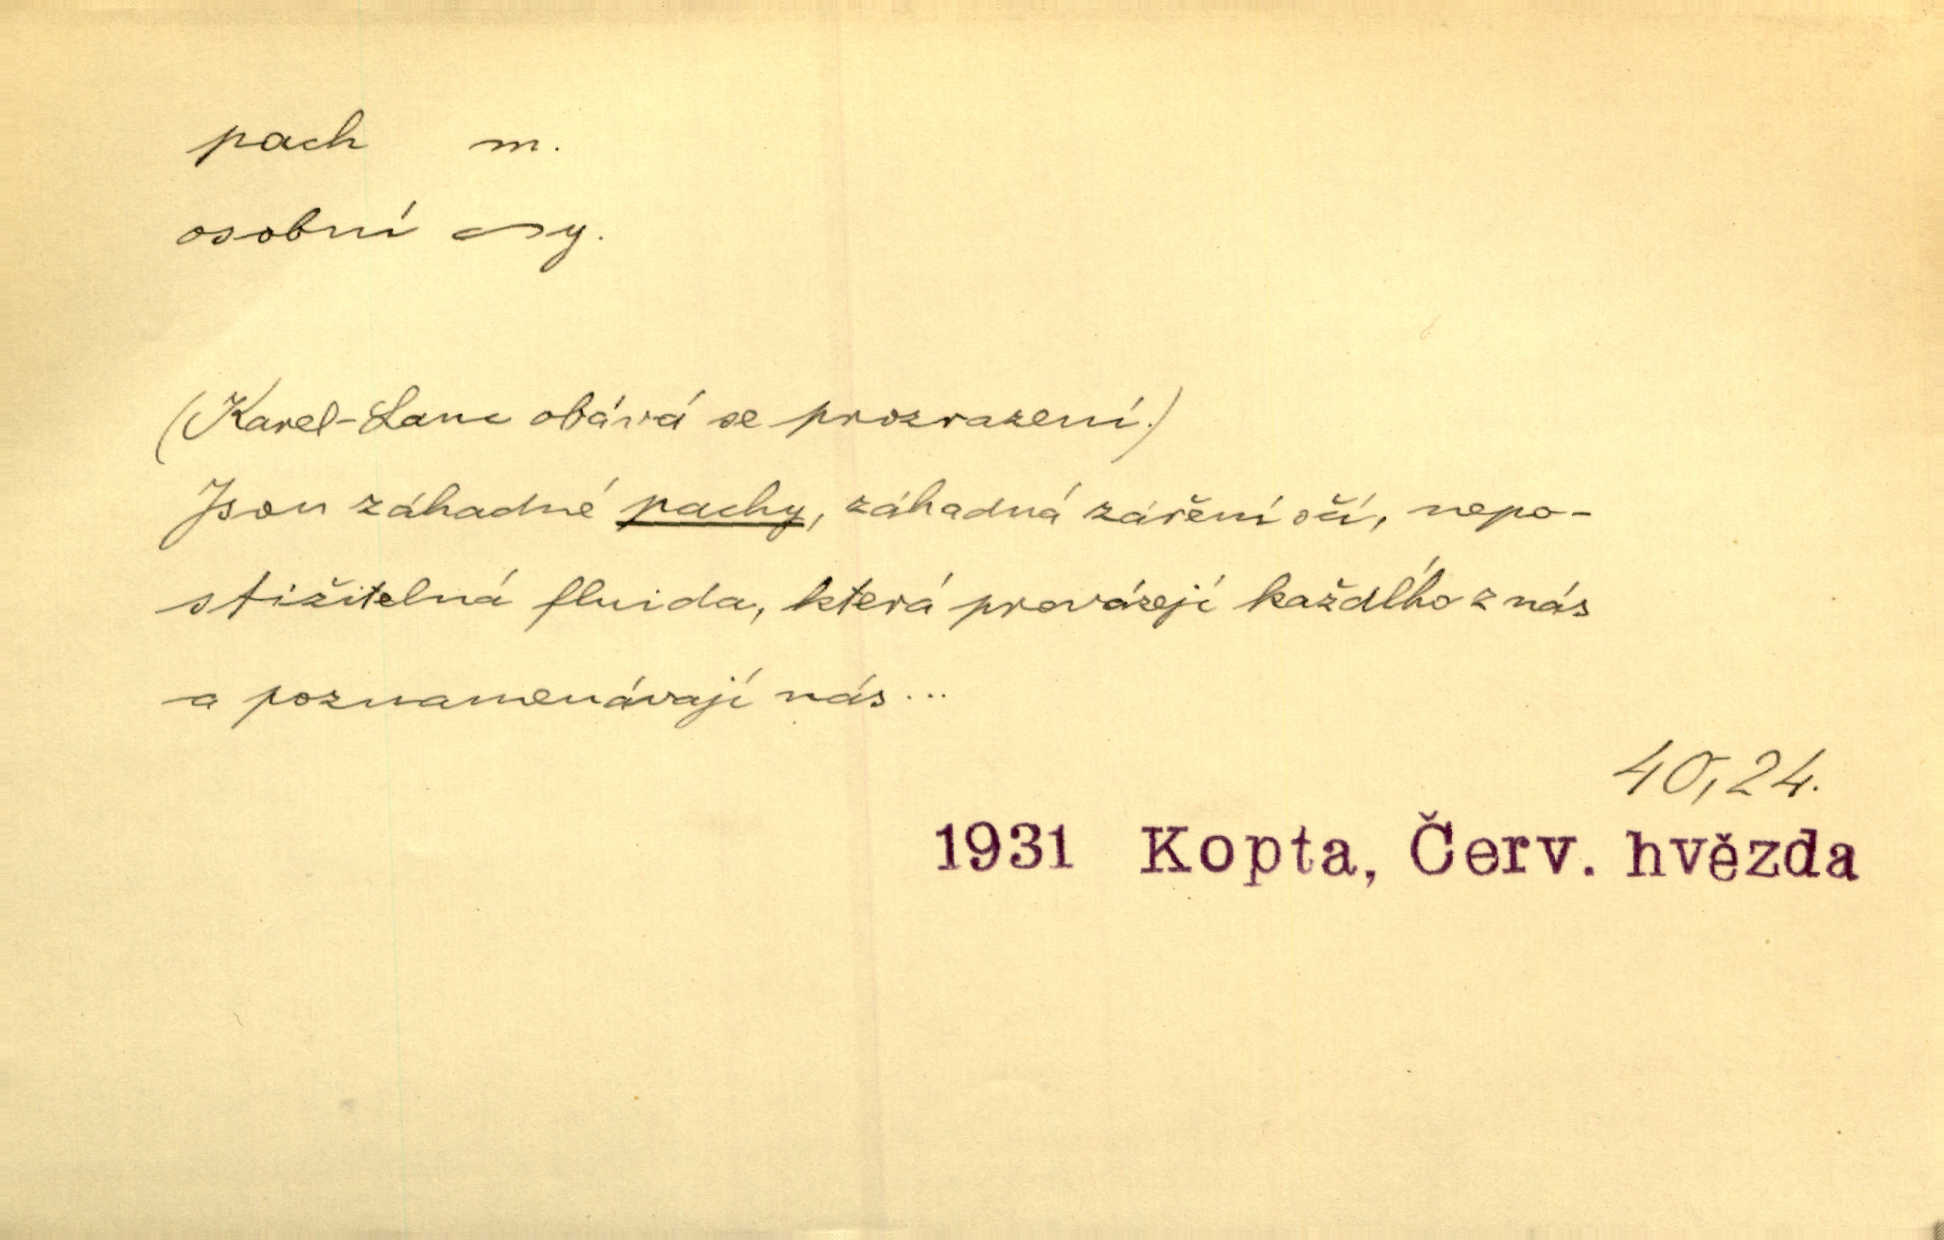 pach m.
osobní ~y.
(Karel-Lanc obává se prozrazení.)
Jsou záhadné pachy, záhadná záření očí, nepo-
stižitelná fluida, která provázejí každého z nás
a poznamenávají nás...
40,24.
1931 Kopta, Červ. hvězda